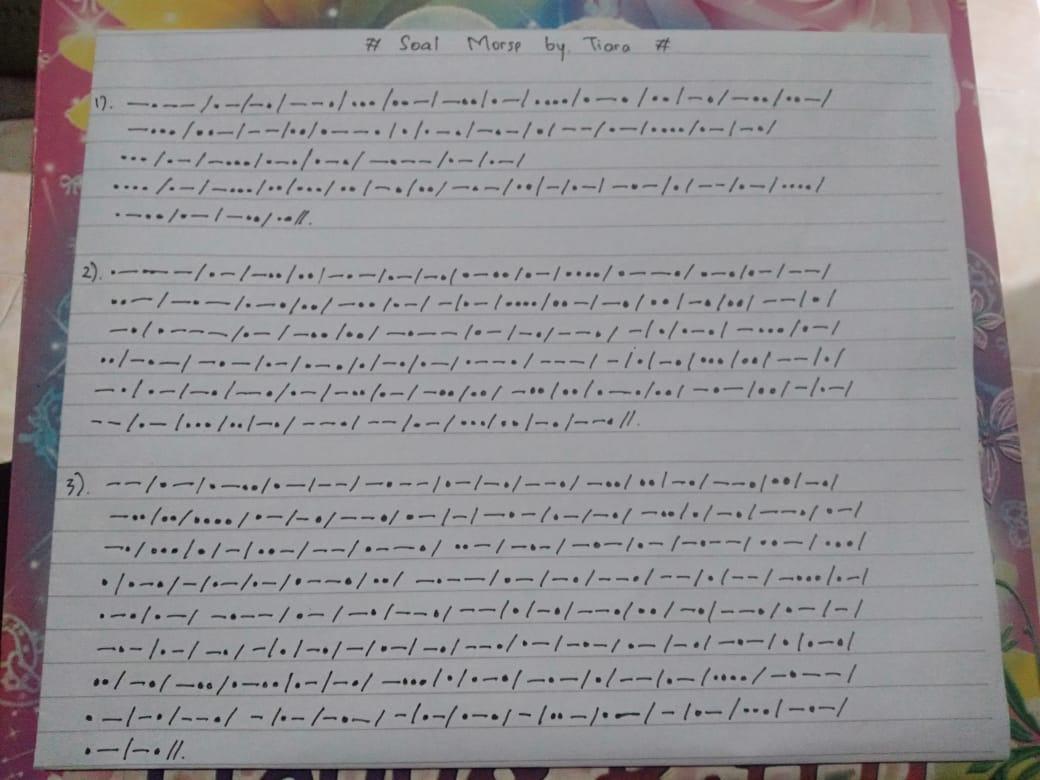 # Soal Morse by Tiara #
1). —·——/·—/—·/——·/···/··—/—··/·—/····/·—·/··/—·/—··/··—/
—···/··—/——/··/·——·/·/·—·/—·—/·/——/·—/····/·—/—·/
···/·—/—···/·—/·—·/—·——/·—/·—/
····/·—/—···/··/···/··/—·/··/—·—/··/—/·—/—·—/·/——/·—/····/
·—··/·—/—··/··//.
2). ·———/·—/—··/··/—·—/·—/—·/·—··/·—/····/·——·/·—·/·—/——/
··—/—·—/·—·/··/—··/·—/—/·—/····/··—/—·/··/—·/··/——/·/
—·/·———/·—/—··/··/—·——/·—/—·/——·/—/·/·—·/—···/·—/
··/—·—/—·—/·—/·—·/·/—·/·—/·——·/———/—/·/—·/···/··/——/·/
—·/·—/—·/——·/·—/—··/·—/—··/··/—··/··/·—·/··/—·—/··/—/·—/
——/·—/···/··/—·/——·/——/·—/···/··/—·/——·//.
3). ——/·—/·—··/·—/——/—·——/·—/—·/——·/—··/··/—·/——·/··/—·/
—··/··/····/·—/—·/——·/·—/—/—·—/·—/—·/—··/·/—·/——·/·—/
—·/···/·/—/··—/——/·——·/··—/—·—/—·—/·—/—·——/··—/···/
·/·—·/—/·—/·—/·——·/··/—·——/·—/—·/——·/——/·/——/—···/·—/
·—·/·—/—·——/·—/—·/——·/——/·/—·/——·/··/—·/——·/·—/—/
—·—/·—/—·/—/·/—·/—/·—/—·/——·/·—/——/·—/—·/—·—/·/·—·/
··/—·/—··/·—··/·—/—·/—···/·/·—·/—·—/·/——/·—/····/—·——/
·—/—·/——·/—/·—/—·—/—/·—/·—·/—/··—/·—/—/·—/···/—·—/
·—/—·//.